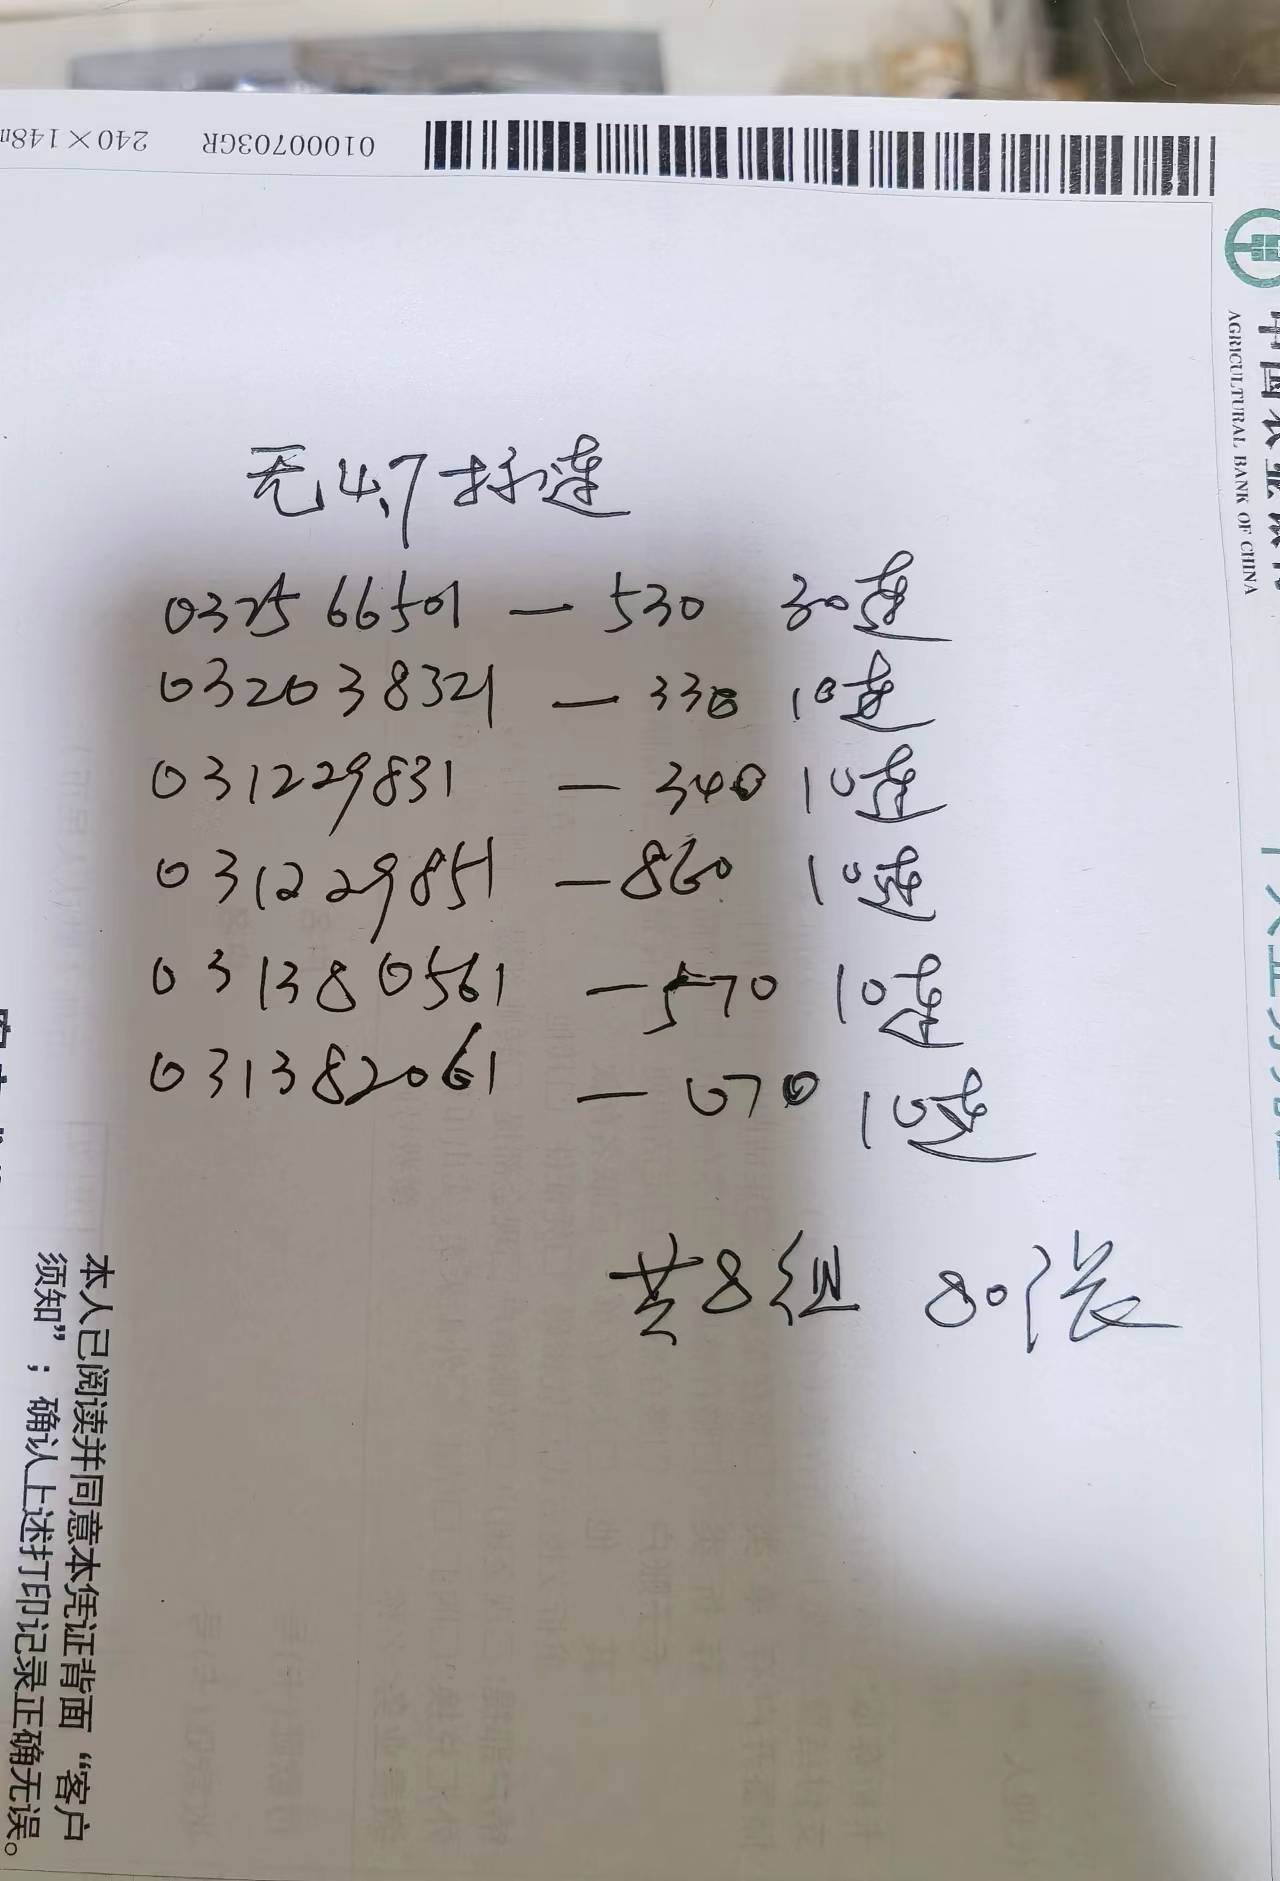 01000703GR 240×148m
AGRICULTURAL BANK OF CHINA
无4,7标连
032566501 — 530 30连
032038321 — 330 10连
031229831 — 340 10连
031229851 — 860 10连
031380561 — 570 10连
031382061 — 070 10连
共8组 80张
本人已阅读并同意本凭证背面“客户
须知”；确认上述打印记录正确无误。